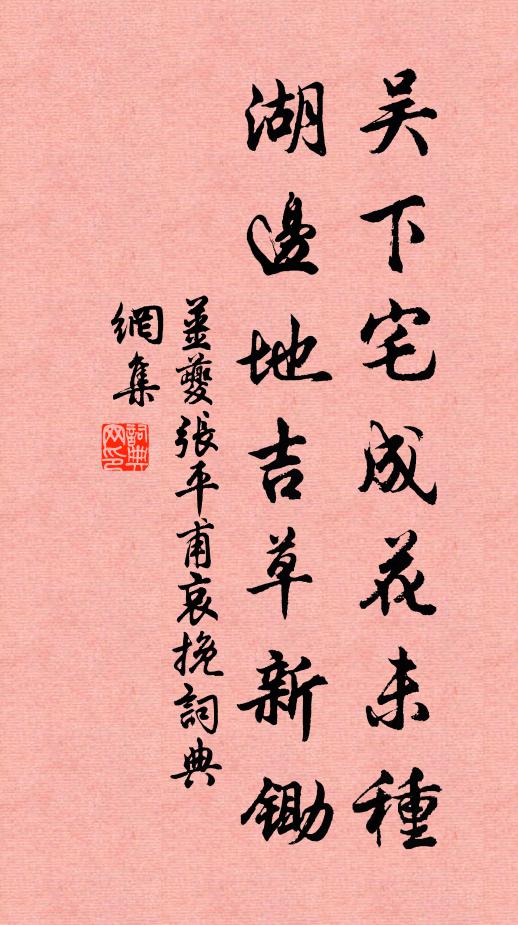 吴下宅成花未種
湖邊地吉草新鋤
姜夔張平甫哀挽詞典
網集
詞典
网印